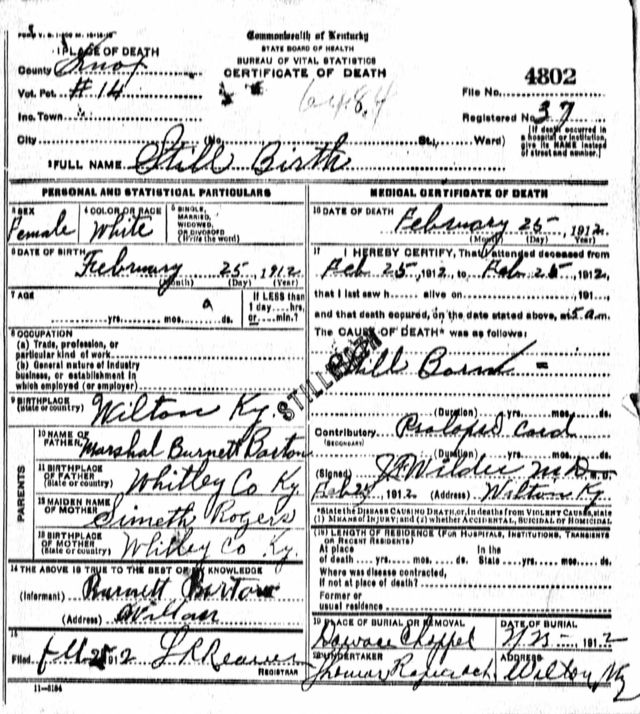 FORM V. S. 1-
Commonwealth of Kentucky
STATE BOARD OF HEALTH
BUREAU OF VITAL STATISTICS
CERTIFICATE OF DEATH
1 PLACE OF DEATH
County Knox
Vot. Pct. #14
Ino. Town
City No. St., Ward)
File No. 4802
Registered No. 37
(If death occurred in
a hospital or institution,
give its NAME instead
of street and number.)
2 FULL NAME Still Birth
PERSONAL AND STATISTICAL PARTICULARS
3 SEX
Female
4 COLOR OR RACE
White
5 SINGLE,
MARRIED,
WIDOWED,
OR DIVORCED
(Write the word)
6 DATE OF BIRTH
February 25, 1912
(Month) (Day) (Year)
7 AGE
yrs. mos. ds.
If LESS than
1 day....hrs.
or....min.?
8 OCCUPATION
(a) Trade, profession, or
particular kind of work
(b) General nature of industry
business, or establishment in
which employed (or employer)
9 BIRTHPLACE
(State or country) Wilton Ky.
STILLBIRTH
PARENTS
10 NAME OF
FATHER Marshal Burnett Barton
11 BIRTHPLACE
OF FATHER
(State or country) Whitley Co Ky.
12 MAIDEN NAME
OF MOTHER Simeth Rogers
13 BIRTHPLACE
OF MOTHER
(State or country) Whitley Co Ky.
14 THE ABOVE IS TRUE TO THE BEST OF MY KNOWLEDGE
(Informant) Burnett Barton
(Address) Wilton
15
Filed 1912
REGISTRAR
11-3184
MEDICAL CERTIFICATE OF DEATH
16 DATE OF DEATH
February 25, 1912
(Month) (Day) (Year)
17 I HEREBY CERTIFY, That I attended deceased from
Feb 25, 1912, to Feb 25, 1912,
that I last saw h alive on , 191
and that death occured, on the date stated above, at 5 a.m.
The CAUSE OF DEATH* was as follows:
Still Born
(Duration) yrs. mos. ds.
Contributory Prolapsed Cord
(SECONDARY)
(Duration) yrs. mos. ds.
(Signed) J F Wilder M.D.
Feb 25, 1912. (Address) Wilton Ky.
*State the DISEASE CAUSING DEATH, or, in deaths from VIOLENT CAUSES, state
(1) MEANS OF INJURY; and (2) whether ACCIDENTAL, SUICIDAL or HOMICIDAL
(18) LENGTH OF RESIDENCE (FOR HOSPITALS, INSTITUTIONS, TRANSIENTS
OR RECENT RESIDENTS)
At place
of death yrs. mos. ds.
In the
State yrs. mos. ds.
Where was disease contracted,
If not at place of death?
Former or
usual residence
19 PLACE OF BURIAL OR REMOVAL
DATE OF BURIAL
2/25 1912
20 UNDERTAKER
Thomas
ADDRESS
Wilton, Ky